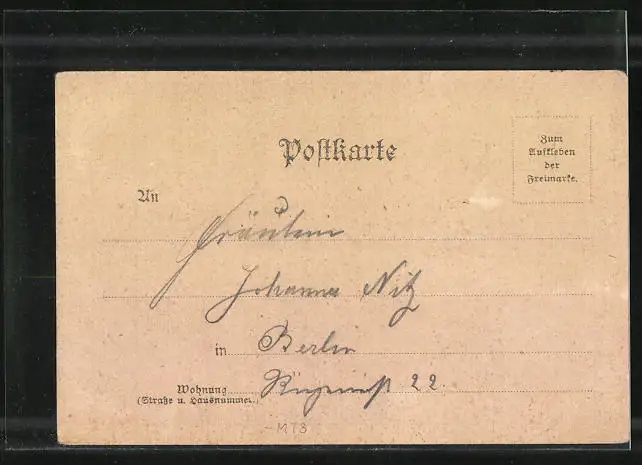 Postkarte
Zum
Aufkleben
der
Freimarke.
An
Fräulein
Johanna Nitz
in Berlin
Wohnung
(Straße u. Hausnummer.)
22.